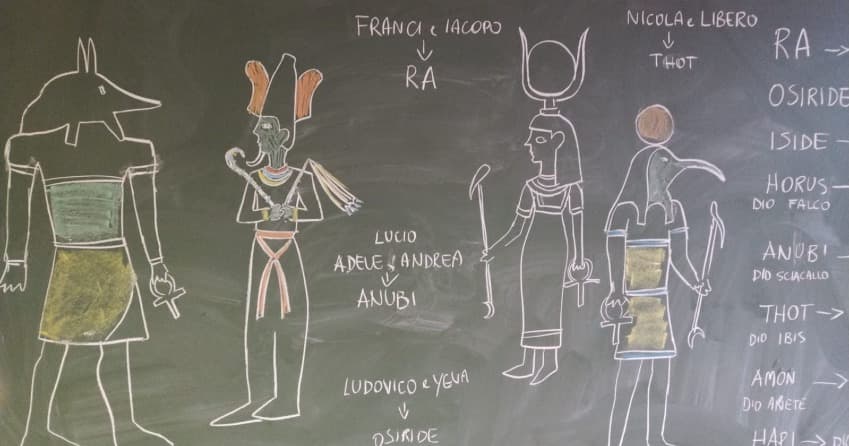 FRANCI e IACOPO
↓
RA
LUCIO
ADELE e ANDREA
↓
ANUBI
LUDOVICO e
↓
OSIRIDE
NICOLA e LIBERO
↓
THOT
RA →
OSIRIDE
ISIDE -
HORUS -
DIO FALCO
ANUBI -
DIO SCIACALLO
THOT →
DIO IBIS
AMON →
DIO ARIETE
HAPI →